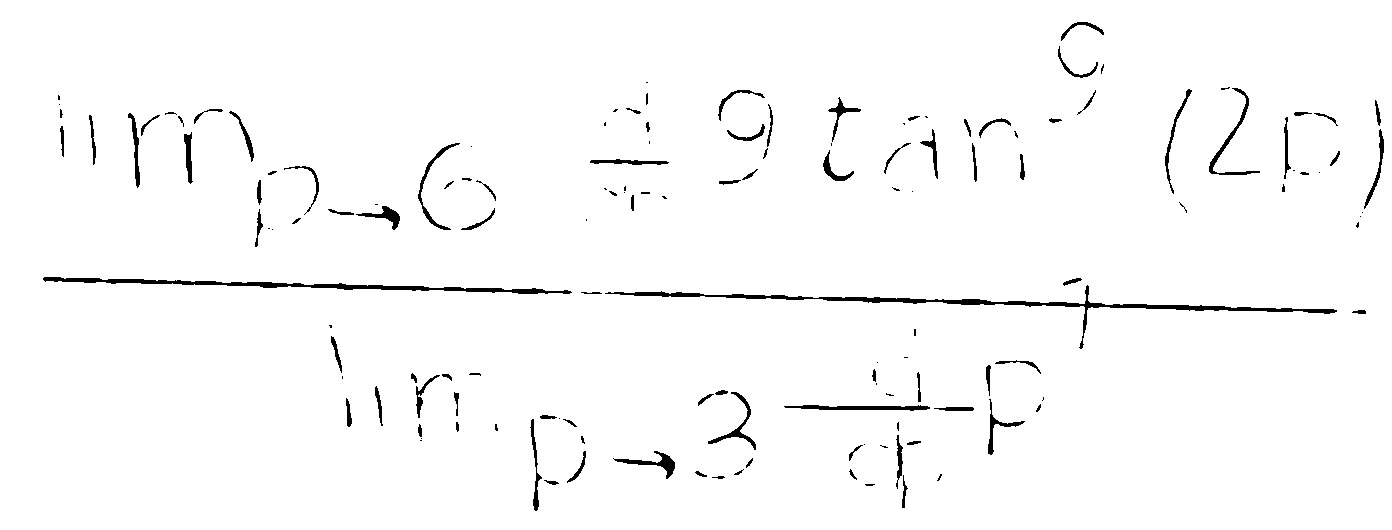 \frac{\lim_{p \to 6} \frac{d}{dp} 9 \tan^{9} (2p)}{\lim_{p \to 3} \frac{d}{dp} p^{7}}